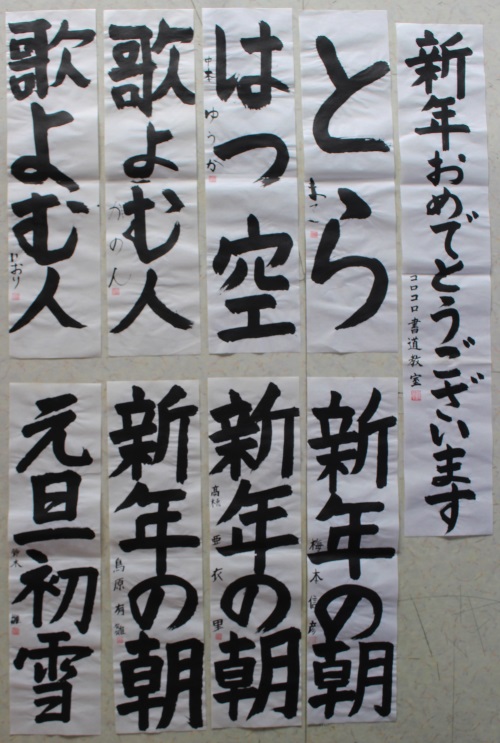 新年おめでとうございます
コロコロ書道教室
とら
はつ空
ゆうか
歌よむ人
かのん
歌よむ人
かおり
新年の朝
梅木
新年の朝
亜衣里
新年の朝
鳥原有
元旦初雪
鈴木